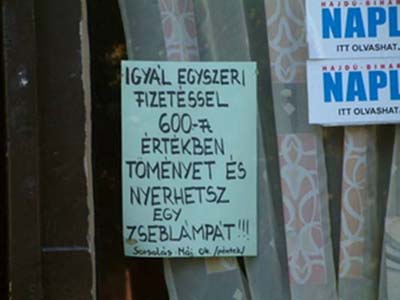 IGYÁL EGYSZERI
FIZETÉSSEL
600-Ft
ÉRTÉKBEN
TÖMÉNYET ÉS
NYERHETSZ
EGY
ZSEBLÁMPÁT!!!
Sorsolás: Máj 04. /péntek/
HAJDÚ-BIHAR
NAPL
ITT OLVASHAT
HAJDÚ-BIHAR
NAPL
ITT OLVASHAT